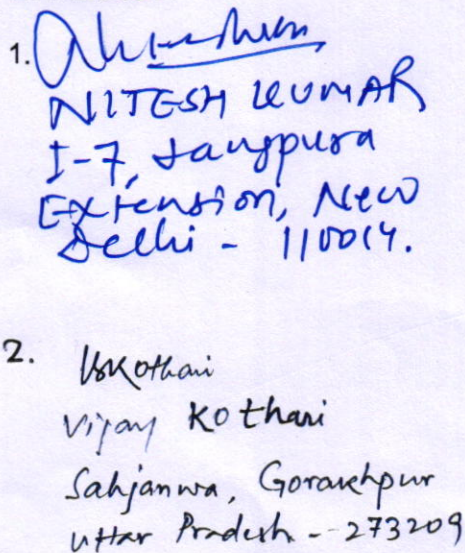 1.
NITESH KUMAR
I-7, Jangpura
Extension, New
Delhi - 110014.
2. VKKothari
Vijay Kothari
Sahjanwa, Gorakhpur
Uttar Pradesh - 273209